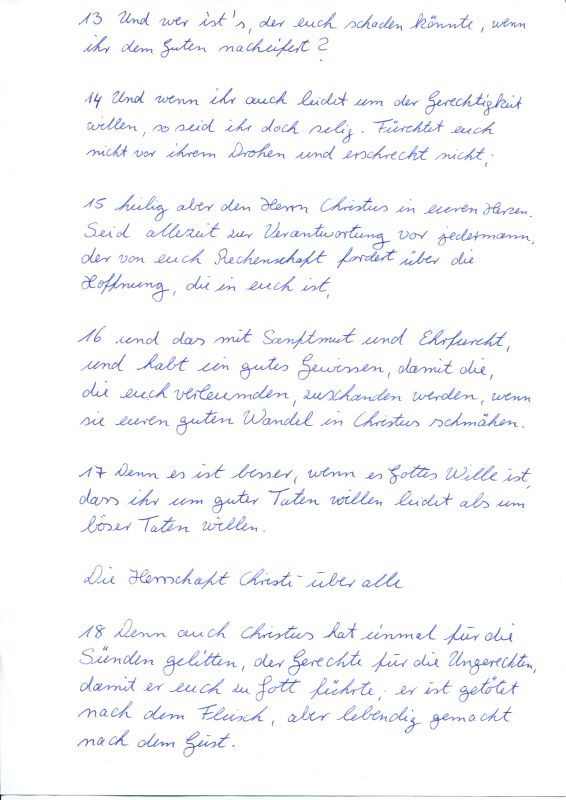 13 Und wer ist's, der euch schaden könnte, wenn
ihr dem Guten nacheifert?
14 Und wenn ihr auch leidet um der Gerechtigkeit
willen, so seid ihr doch selig. Fürchtet euch
nicht vor ihrem Drohen und erschreckt nicht;
15 heilig aber den Herrn Christus in euren Herzen.
Seid allezeit zur Verantwortung vor jedermann,
der von euch Rechenschaft fordert über die
Hoffnung, die in euch ist,
16 und das mit Sanftmut und Ehrfurcht,
und habt ein gutes Gewissen, damit die,
die euch verleumden, zuschanden werden, wenn
sie euren guten Wandel in Christus schmähen.
17 Denn es ist besser, wenn es Gottes Wille ist,
dass ihr um guter Taten willen leidet als um
böser Taten willen.
Die Herrschaft Christi über alle
18 Denn auch Christus hat einmal für die
Sünden gelitten, der Gerechte für die Ungerechten,
damit er euch zu Gott führte; er ist getötet
nach dem Fleisch, aber lebendig gemacht
nach dem Geist.